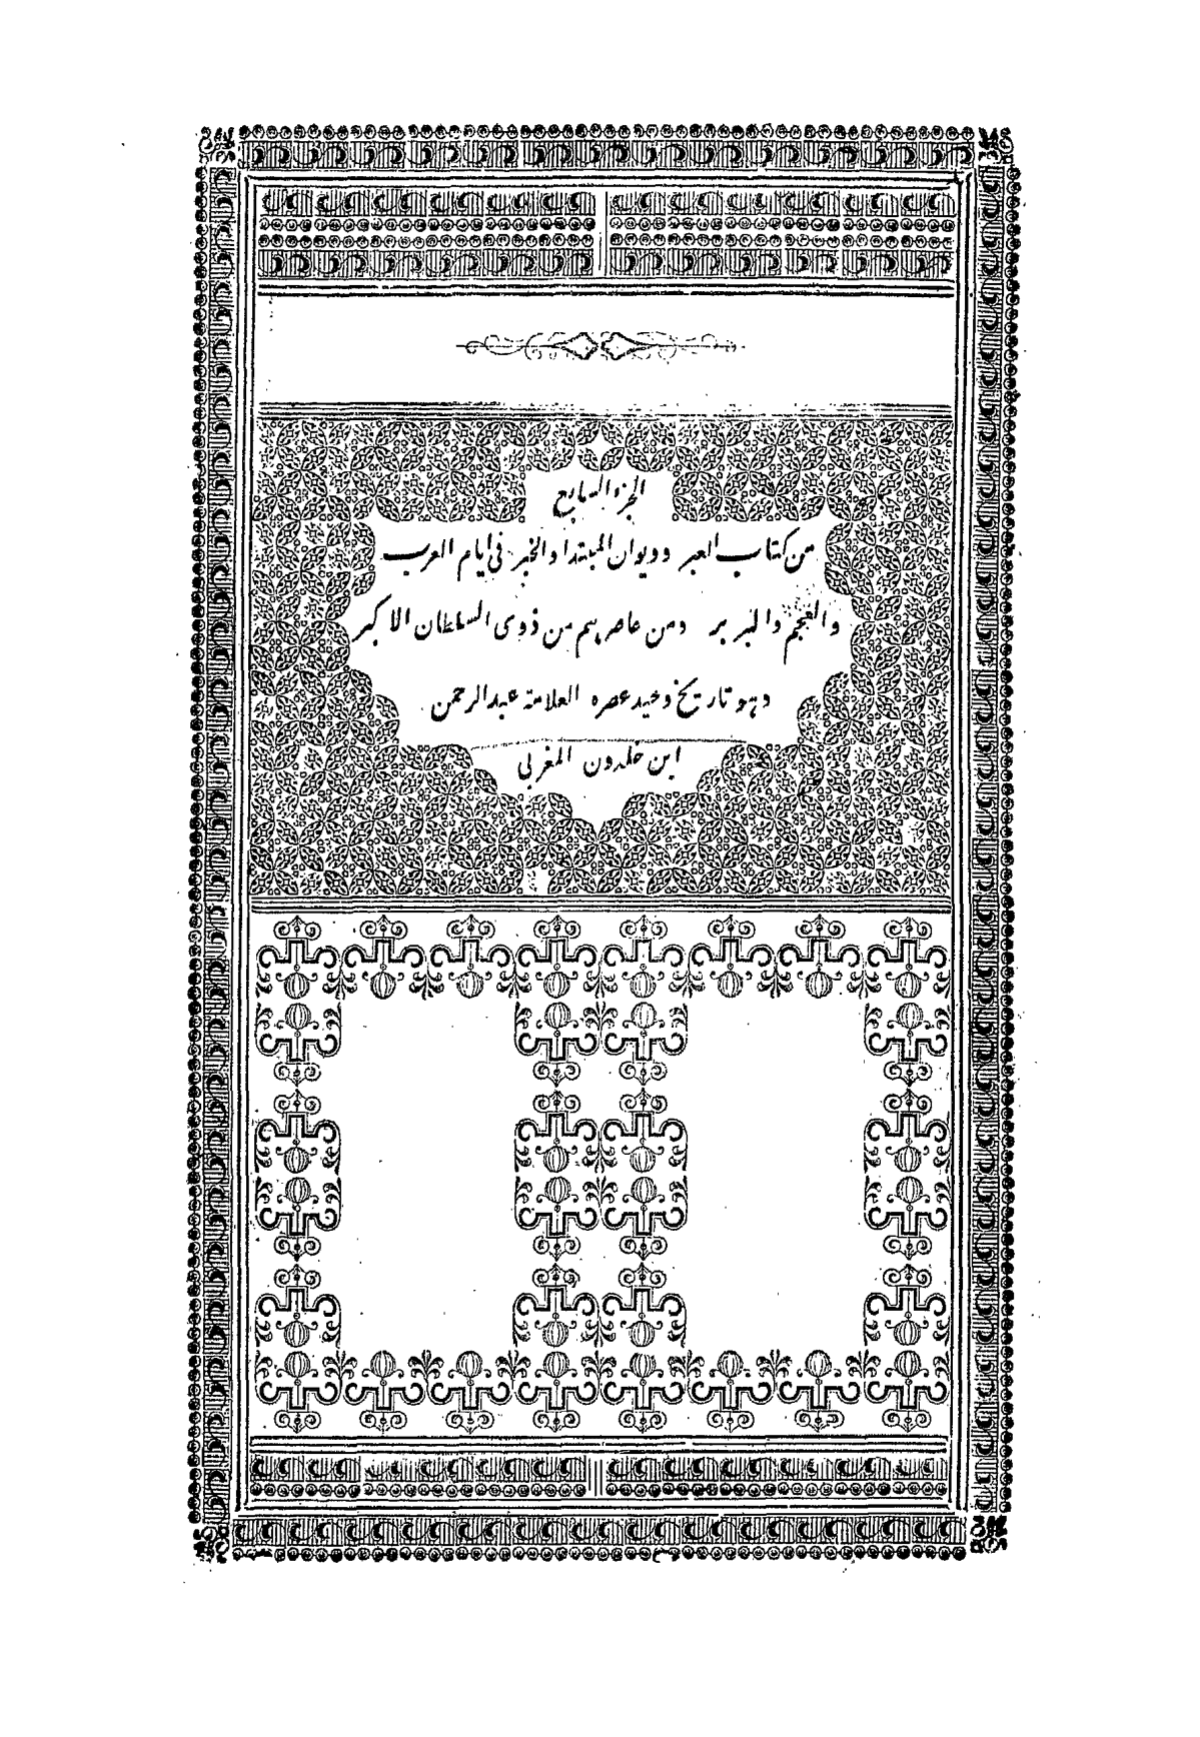 الجزء السابع
من كتاب العبر وديوان المبتدا والخبر فى ايام العرب
والعجم والبربر ومن عاصرهم من ذوى السلطان الاكبر
وهو تاريخ وحيد عصره العلامة عبدالرحمن
ابن خلدون المغربى